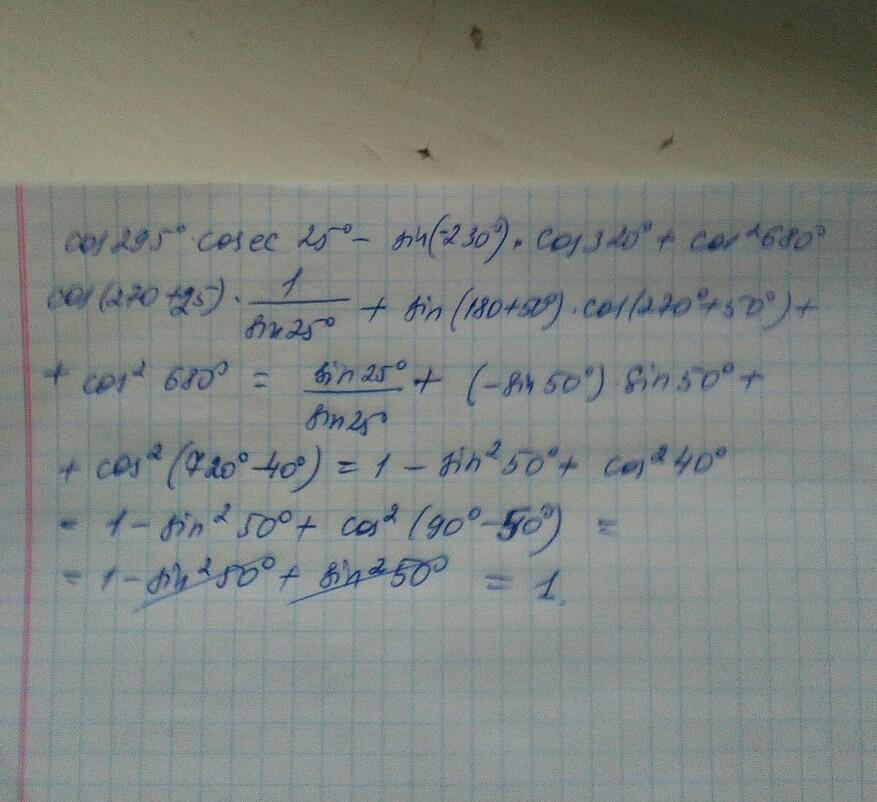 cos 295° · cosec 25° - sin(-230°) · cos 320° + cos² 680°
cos(270+25) · 1/sin 25° + sin(180+50°) · cos(270°+50°) +
+ cos² 680° = sin 25°/sin 25° + (-sin 50°) · sin 50° +
+ cos² (720° - 40°) = 1 - sin² 50° + cos² 40°
= 1 - sin² 50° + cos² (90° - 50°) =
= 1 - sin² 50° + sin² 50° = 1.